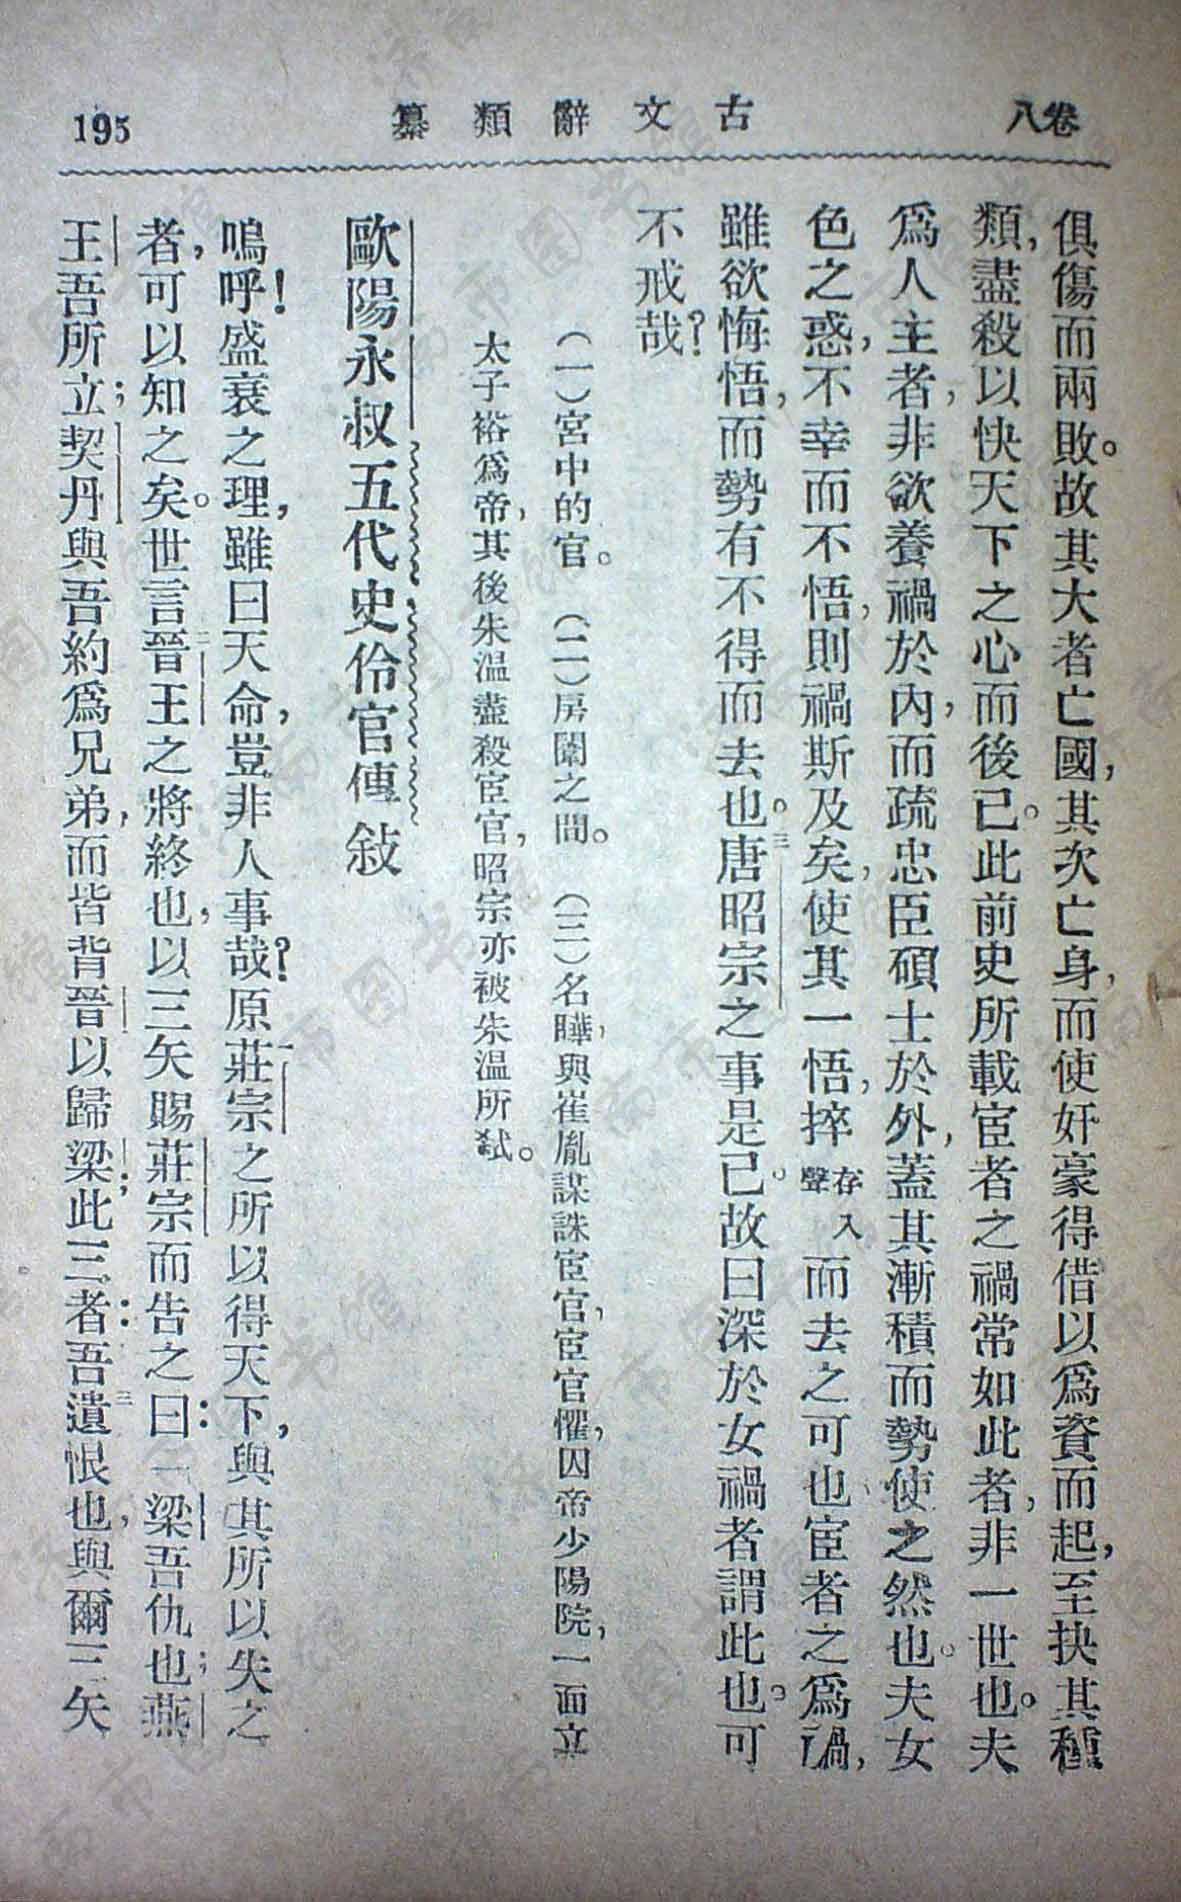 卷八
古文辭類纂
195
俱傷而兩敗。故其大者亡國，其次亡身，而使奸豪得借以爲資而起，至抉其種
類，盡殺以快天下之心而後已。此前史所載宦者之禍常如此者，非一世也。夫
爲人主者，非欲養禍於內，而疏忠臣碩士於外，蓋其漸積而勢使之然也。夫女
色之惑，不幸而不悟，則禍斯及矣，使其一悟，捽存入聲而去之可也，宦者之爲禍，
雖欲悔悟，而勢有不得而去也。唐昭宗三之事是已。故曰深於女禍者謂此也。可
不戒哉？
（一）宮中的官。（二）房闥之間。（三）名曄，與崔胤謀誅宦官，宦官懼，囚帝少陽院，一面立
太子裕爲帝，其後朱溫盡殺宦官，昭宗亦被朱溫所弒。
歐陽永叔五代史伶官傳敍
嗚呼！盛衰之理，雖曰天命，豈非人事哉？原莊宗一之所以得天下，與其所以失之
者，可以知之矣。世言晉王二之將終也，以三矢賜莊宗而告之曰：梁吾仇也；燕
王吾所立；契丹與吾約爲兄弟，而皆背晉以歸梁；此三者：吾遺三恨也，與爾三矢